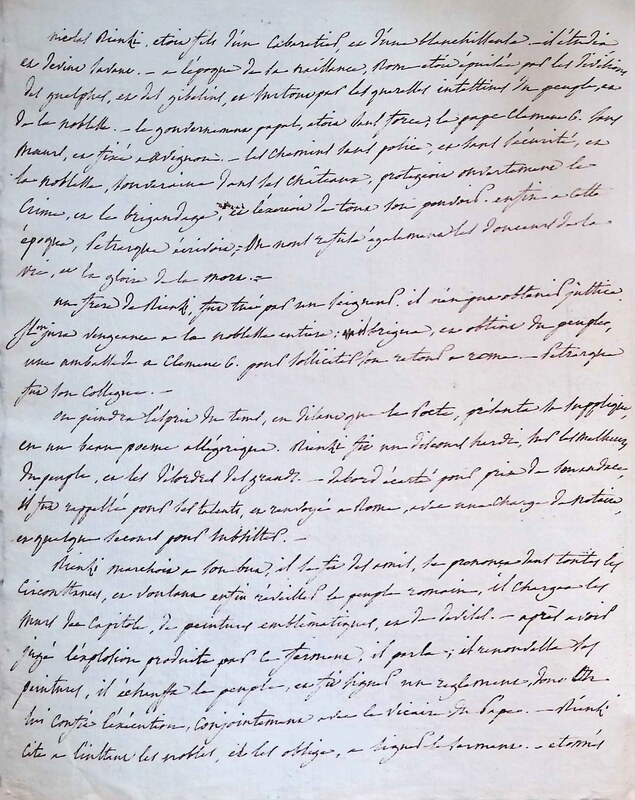 nicolas Rienzi, etoit fils d'un Cabaretier, et d'une blanchisseuse – il étudia
et devint savant. – a l'époque de sa naissance, Rome etoit épuisée par les divisions
des guelphes, et des gibelins, et surtout par les querelles intestines du peuple, et
de la noblesse. – le gouvernement papal, etoit sans force, le pape Clement 6. sans
mœurs, et fixé a avignon. – les chemins sans police, et sans sécurité, et
la noblesse, souveraine dans ses chateaux, protegeoit ouvertement le
Crime, et le brigandage, et l'exercoit de tout son pouvoir. enfin a cette
époque, Petrarque écrivoit; On nous refuse également les douceurs de la
vie, et la gloire de la mort. –
un frere de Rienzi, fut tué par un seigneur. il n'en put obtenir justice.
Mon jura vengeance a la noblesse entiere: il brigua, et obtint du peuple,
une ambassade a Clement 6. pour solliciter son retour a rome. – Petrarque
fut son collegue. –
On peindra l'esprit du tems, en disant que le Poete, présenta sa supplique
en un beau poeme allégorique. Rienzi fit un discours hardi, sur les malheurs
du peuple, et les désordres des grands. – d'abord écarté pour prix de son audace,
il fut rappellé pour ses talents, et renvoyé a Rome, avec une charge de notaire,
et quelque secours pour subsister. –
Rienzi marchoit a son but, il se fit des amis, se prononça dans toutes les
Circonstances, et voulant enfin reveiller le peuple romain, il chargea les
Murs du Capitole, de peintures emblématiques, et de devises. – après avoir
jugé l'explosion produite par ce ferment, il parla; il renouvella ses
peintures, il échauffa le peuple, et fit signer un reglement, dont
lui confie l'exécution, conjointement avec le vicaire du Pape. – Rienzi
cite a l'instant les nobles, et les oblige, a signer le serment. – etonnés